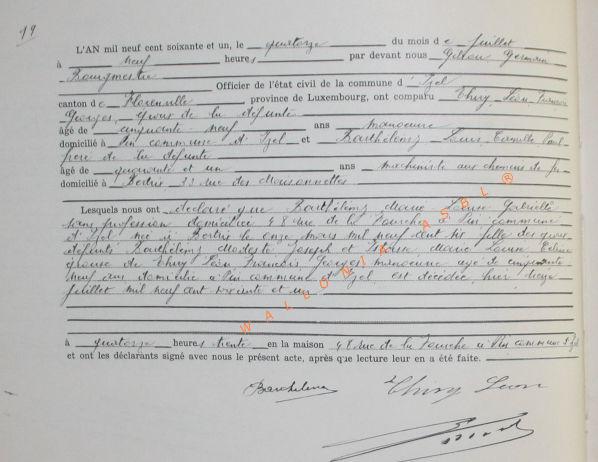 19
L'AN mil neuf cent soixante et un, le quatorze du mois de juillet
à neuf heures par devant nous Germain
Bourgmestre
Officier de l'état civil de la commune d' Izel
canton de Florenville province de Luxembourg, ont comparu Thiry Léon François
Georges, époux de la défunte
âgé de cinquante neuf ans manoeuvre
domicilié à Pin commune d'Izel et Barthélemy Louis Camille Paul
frère de la défunte
âgé de quarante et un ans machiniste aux chemins de fer
domicilié à Bertrix 33 rue des Maisonnettes
Lesquels nous ont déclaré que Barthélemy Marie Louise Gabrielle
sans profession domiciliée 48 rue de la à Pin commune
d'Izel née à Bertrix le onze mars mil neuf cent six fille des époux
défunts Barthélemy Modeste Joseph et Marie Louise
épouse de Thiry Léon François Georges manoeuvre âgé de cinquante
neuf ans domicilié à Pin commune d'Izel est décédée hier treize
juillet mil neuf cent soixante et un
à quatorze heures trente en la maison 48 rue de la à Pin commune d'Izel
et ont les déclarants signé avec nous le présent acte, après que lecture leur en a été faite.
Barthélemy Thiry Léon
WALLONIA ASBL ®